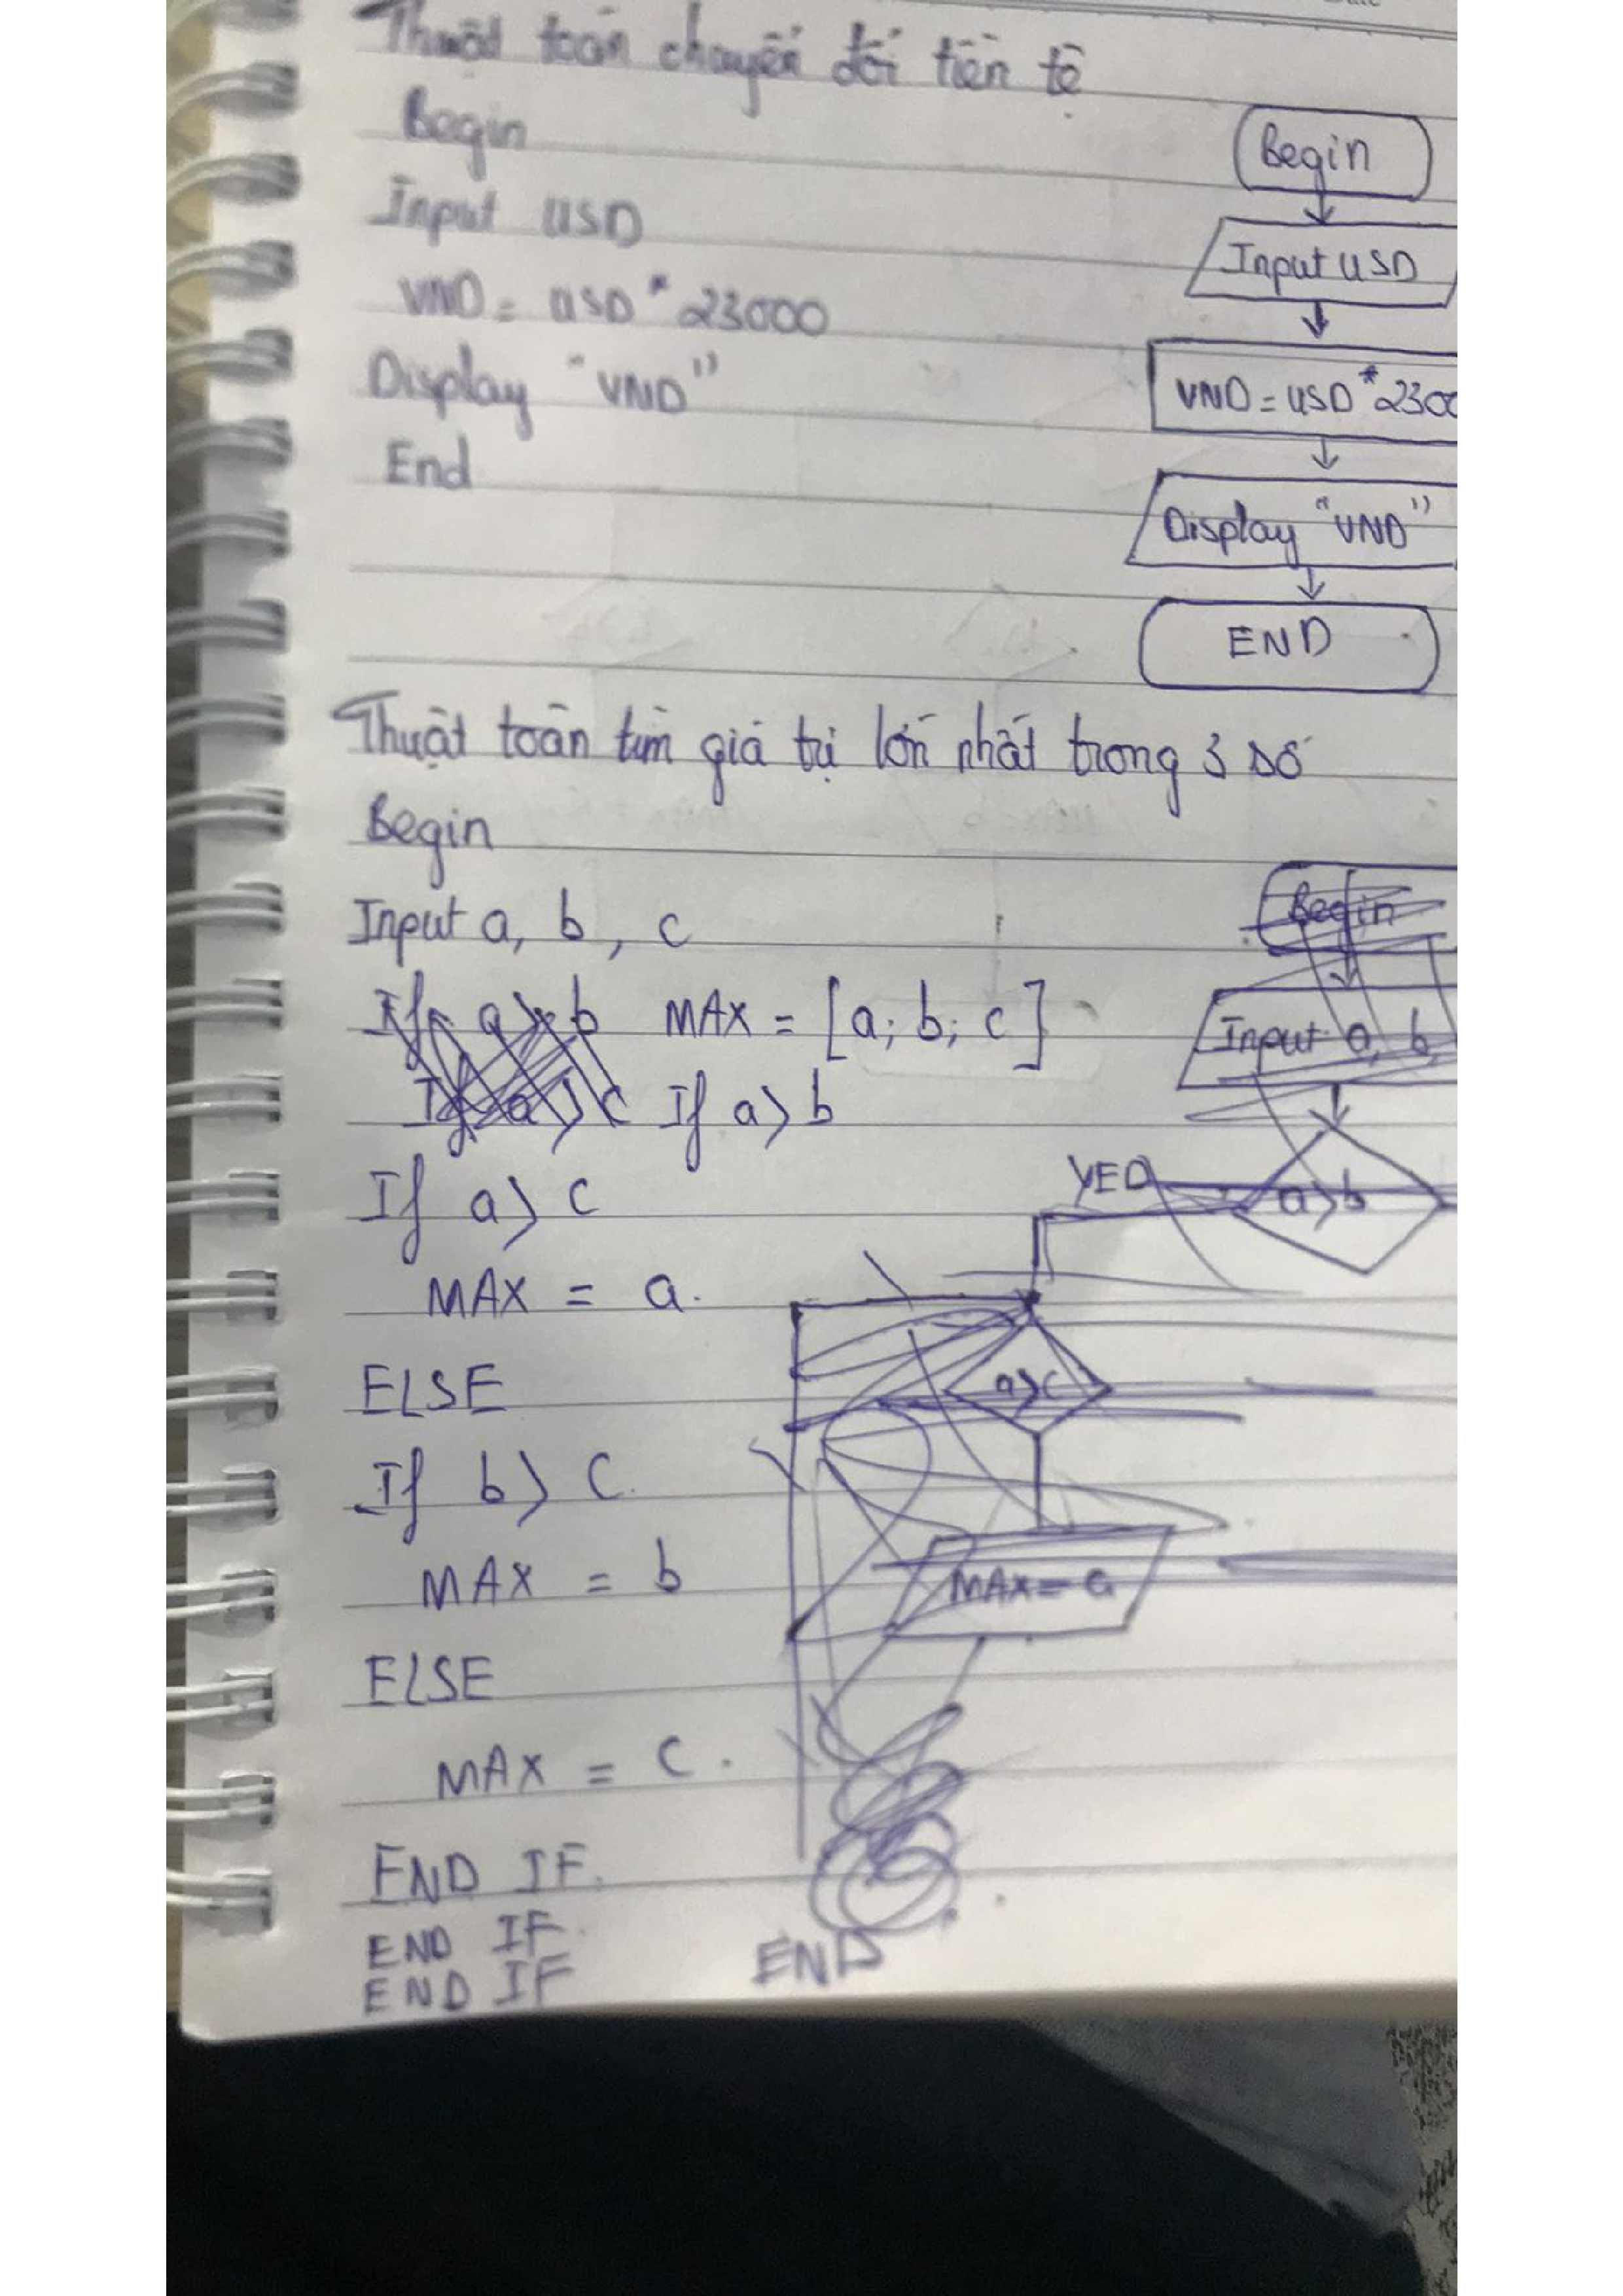 Thuật toán chuyển đổi tiền tệ
Begin
Input USD
VND = USD * 23000
Display "VND"
End
Begin
Input USD
VND = USD * 2300
Display "VND"
END
Thuật toán tìm giá trị lớn nhất trong 3 số
Begin
Input a, b, c
If a > b MAX = [a; b; c]
If a > c If a > b
If a > c
MAX = a.
ELSE
If b > c.
MAX = b
ELSE
MAX = c.
END IF.
END IF.
END IF
END
Begin
Input a, b,
a > b
YED
a > c
MAX = a